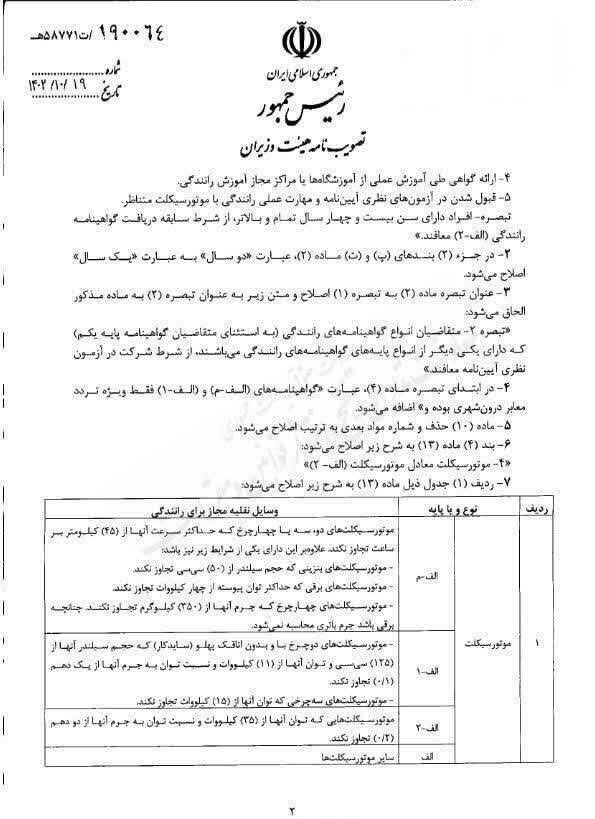 ۱۹۰۰۶۴/ت۵۸۷۷۱هـ
جمهوری اسلامی ایران
رئیس جمهور
تصویب نامه هیئت وزیران
شماره
تاریخ ۱۴۰۲/۱۰/۱۹
۴- ارائه گواهی طی آموزش عملی از آموزشگاه‌ها یا مراکز مجاز آموزش رانندگی.
۵- قبول شدن در آزمون‌های نظری آیین‌نامه و مهارت عملی رانندگی با موتورسیکلت متناظر.
تبصره- افراد دارای سن بیست و چهار سال تمام و بالاتر، از شرط سابقه دریافت گواهینامه
رانندگی (الف-۲) معافند.»
۲- در جزء (۲) بندهای (پ) و (ت) ماده (۲)، عبارت «دو سال» به عبارت «یک سال»
اصلاح می‌شود.
۳- عنوان تبصره ماده (۲) به تبصره (۱) اصلاح و متن زیر به عنوان تبصره (۲) به ماده مذکور
الحاق می‌شود:
«تبصره ۲- متقاضیان انواع گواهینامه‌های رانندگی (به استثنای متقاضیان گواهینامه پایه یکم)
که دارای یکی دیگر از انواع پایه‌های گواهینامه‌های رانندگی می‌باشند، از شرط شرکت در آزمون
نظری آیین‌نامه معافند.»
۴- در ابتدای تبصره ماده (۴)، عبارت «گواهینامه‌های (الف-م) و (الف-۱) فقط ویژه تردد
معابر درون‌شهری بوده و» اضافه می‌شود.
۵- ماده (۱۰) حذف و شماره مواد بعدی به ترتیب اصلاح می‌شود.
۶- بند (۴) ماده (۱۳) به شرح زیر اصلاح می‌شود:
«۴- موتورسیکلت معادل موتورسیکلت (الف-۲)»
۷- ردیف (۱) جدول ذیل ماده (۱۳) به شرح زیر اصلاح می‌شود:
ردیف نوع و یا پایه وسایل نقلیه مجاز برای رانندگی
۱ موتورسیکلت
الف-م
موتورسیکلت‌های دو، سه یا چهارچرخ که حداکثر سرعت آنها از (۴۵) کیلومتر بر
ساعت تجاوز نکند. علاوه‌بر این دارای یکی از شرایط زیر نیز باشد:
- موتورسیکلت‌های بنزینی که حجم سیلندر از (۵۰) سی‌سی تجاوز نکند.
- موتورسیکلت‌های برقی که حداکثر توان پیوسته از چهار کیلووات تجاوز نکند.
- موتورسیکلت‌های چهارچرخ که جرم آنها از (۳۵۰) کیلوگرم تجاوز نکند چنانچه
برقی باشد جرم باتری محاسبه نمی‌شود.
الف-۱
- موتورسیکلت‌های دوچرخ با و بدون اتاقک پهلو (سایدکار) که حجم سیلندر آنها از
(۱۲۵) سی‌سی و توان آنها از (۱۱) کیلووات و نسبت توان به جرم آنها از یک دهم
(۰/۱) تجاوز نکند.
- موتورسیکلت‌های سه‌چرخی که توان آنها از (۱۵) کیلووات تجاوز نکند.
الف-۲
موتورسیکلت‌هایی که توان آنها از (۳۵) کیلووات و نسبت توان به جرم آنها از دو دهم
(۰/۲) تجاوز نکند.
الف سایر موتورسیکلت‌ها
۲